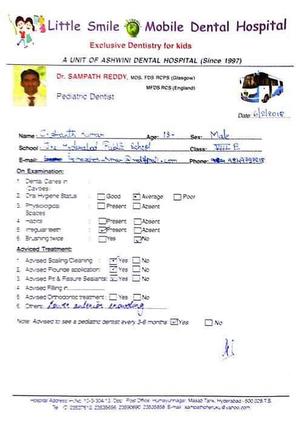 Little Smile Mobile Dental Hospital
Exclusive Dentistry for kids
A UNIT OF ASHWINI DENTAL HOSPITAL (Since 1997)
Dr. SAMPATH REDDY, MDS, FDS RCPS (Glasgow)
MFDS RCS (England)
Pediatric Dentist
Date:
Name: Kumar Age: 13 Sex: Male
School: The Hyderabad Public School Class: VIII E
E-mail: Phone:
On Examination:
1 Dental Caries in Cavities :
2 Oral Hygiene Status : Good Average Poor
3 Physiological Spaces : Present Absent
4 Habits : Present Absent
5 Irregular teeth : Present Absent
6 Brushing twice : Yes No
Adviced Treatment:
1 Advised Scaling/Cleaning : Yes No
2 Advised Flouride application : Yes No
3 Advised Pit & Fissure Sealants : Yes No
4 Advised Filling in
5 Advised Orthodontic treatment : Yes No
6 Others: Lower anterior crowding
Note: Advised to see a pediatric dentist every 3-6 months Yes No
Hospital Address: H.No. 10-3-304/13, Opp. Post Office, Humayunnagar, Masab Tank, Hyderabad - 500 028 T.S.